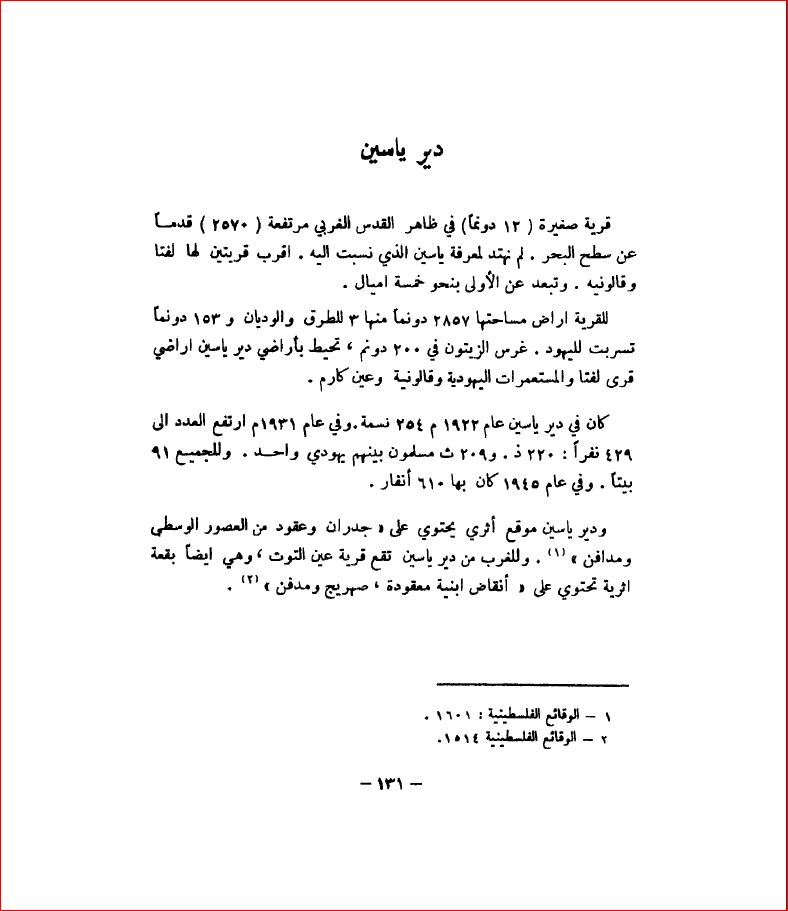 دير ياسين
قرية صغيرة ( ١٢ دونماً) في ظاهر القدس الغربي مرتفعة ( ٢٥٧٠ ) قدمــاً
عن سطح البحر . لم نهتد لمعرفة ياسين الذي نسبت اليه . اقرب قريتين لها لفتا
وقالونيه . وتبعد عن الأولى بنحو خمسة اميال .
للقرية اراض مساحتها ٢٨٥٧ دونماً منها ٣ للطرق والوديان و ١٥٣ دونماً
تسربت لليهود . غرس الزيتون في ٢٠٠ دونم ، تحيط بأراضي دير ياسين اراضي
قرى لفتا والمستعمرات اليهودية وقالونية وعين كارم .
كان في دير ياسين عام ١٩٢٢ م ٢٥٤ نسمة . وفي عام ١٩٣١م ارتفع العدد الى
٤٢٩ نفراً : ٢٢٠ ذ . و٢٠٩ ث مسلمون بينهم يهودي واحــد . وللجميــع ٩١
بيتاً . وفي عام ١٩٤٥ كان بها ٦١٠ أنفار .
ودير ياسين موقع أثري يحتوي على « جدران وعقود من العصور الوسطى
ومدافن » (١) . وللغرب من دير ياسين تقع قرية عين التوت ، وهي ايضاً بقعة
اثرية تحتوي على « أنقاض ابنية معقودة ، صهريج ومدفن » (٢) .
١ – الوقائع الفلسطينية : ١٦٠١ .
٢ – الوقائع الفلسطينية ١٥١٤.
– ١٣١ –